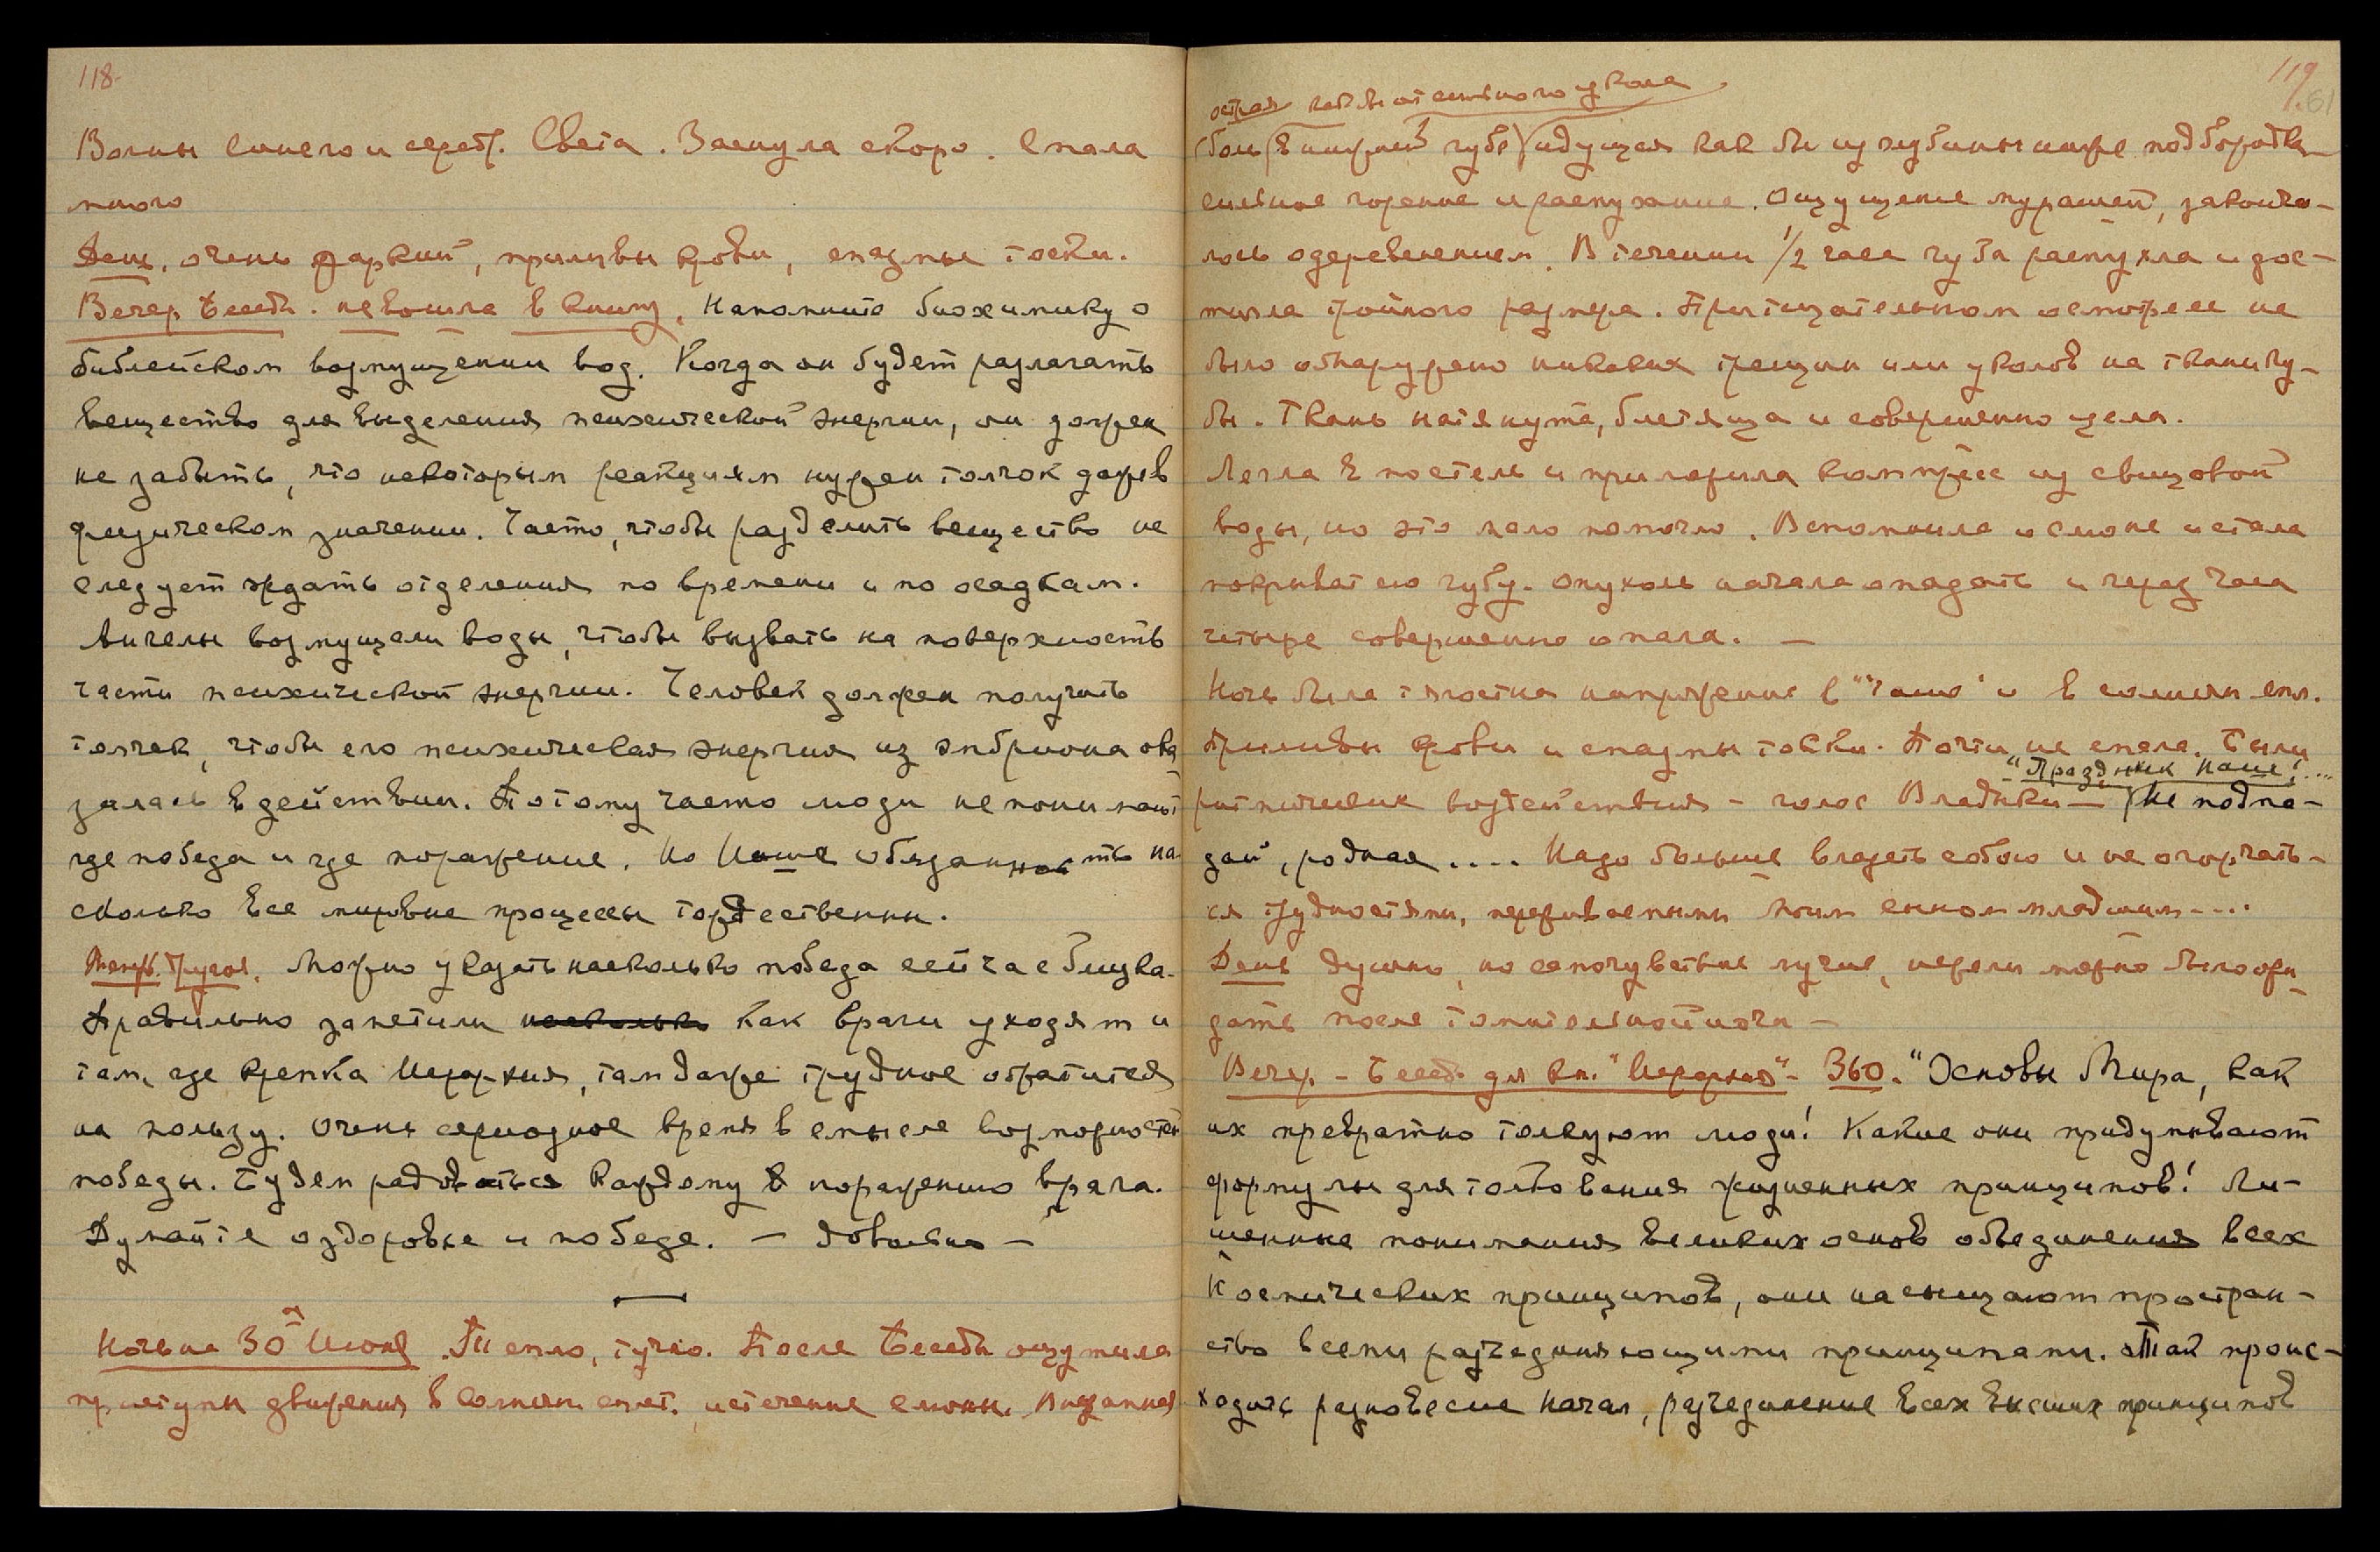 118.
Волны синего и серебр. Света. Заснула скоро. Спала
много
День, очень жаркий, приливы крови, спазмы тоски.
Вечер Беседы. не вошла в книгу. Напомните биохимику о
библейском возмущении вод. Когда он будет разлагать
вещество для выделения психической энергии, он должен
не забыть, что некоторым реакциям нужен толчок даже в
физическом значении. Часто, чтобы разделить вещество не
следует ждать отделения по времени и по осадкам.
Ангелы возмущали воды, чтобы вызвать на поверхность
части психической энергии. Человек должен получить
толчек, чтобы его психическая энергия из эмбриона ока
залась в действии. Потому часто люди не понимают
где победа и где поражение. Но Наша обязанность на
сколько все мировые процессы торжественны.
другая. Можно указать насколько победа сейчас близка.
Правильно заметили насколько как враги уходят и
там, где крепка Иерархия, там даже трудное обратится
на пользу. Очень серьозное время в смысле возможностей
победы. Будем радоваться каждому поражению врага.
Думайте о здоровье и победе. — Довольно —
Ночь на 30ое Июня. Тепло, тучно. После Беседы ощутила
приступы движения в солнечн. сплет. истечение слюны. Внезапная
119
61
острая как бы от сильного укола
(боль (в нижней губе) идущая как бы из глубины ниже подбородка
сильное горение и распухание. Ощущение мурашей, закончи-
лось одеревенением. В течении 1/2 часа губа распухла и дос-
тигла тройного размера. При тщательном осмотре не
было обнаружено никаких трещин или уколов на ткани гу-
бы. Ткань натянута, блестяща и совершенно цела.
Легла в постель и приложила компресс из свинцовой
воды, но это мало помогло. Вспомнила о слюне и стала
покрывать ею губу. Опухоль начала опадать и через часа
четыре совершенно опала. —
Ночь была тягостна напряжение в "Чаше" и в солнечн. спл.
Приливы крови и спазмы тоски. Почти не спала. Были
"Праздник Наш!...
ритмические воздействия — голос Владыки — Не подпа-
дай, родная .... Надо больше владеть собою и не огорчать-
ся трудностями, переживаемыми Моим сыном младшим....
День душно, но самочувствие лучше, нежели можно было ожи
дать после томительной ночи —
Вечер — Бесед. для кн. "Иерархия" — 360. "Основы Мира, как
их превратно толкуют люди! Какие они придумывают
формулы для толкования жизненных принципов! Ли-
шенные понимания великих основ объединения всех
Космических принципов, они насыщают простран-
ство всеми разъединяющими принципами. Так проис-
ходить равновесие Начал, разъединение всех высших принципов